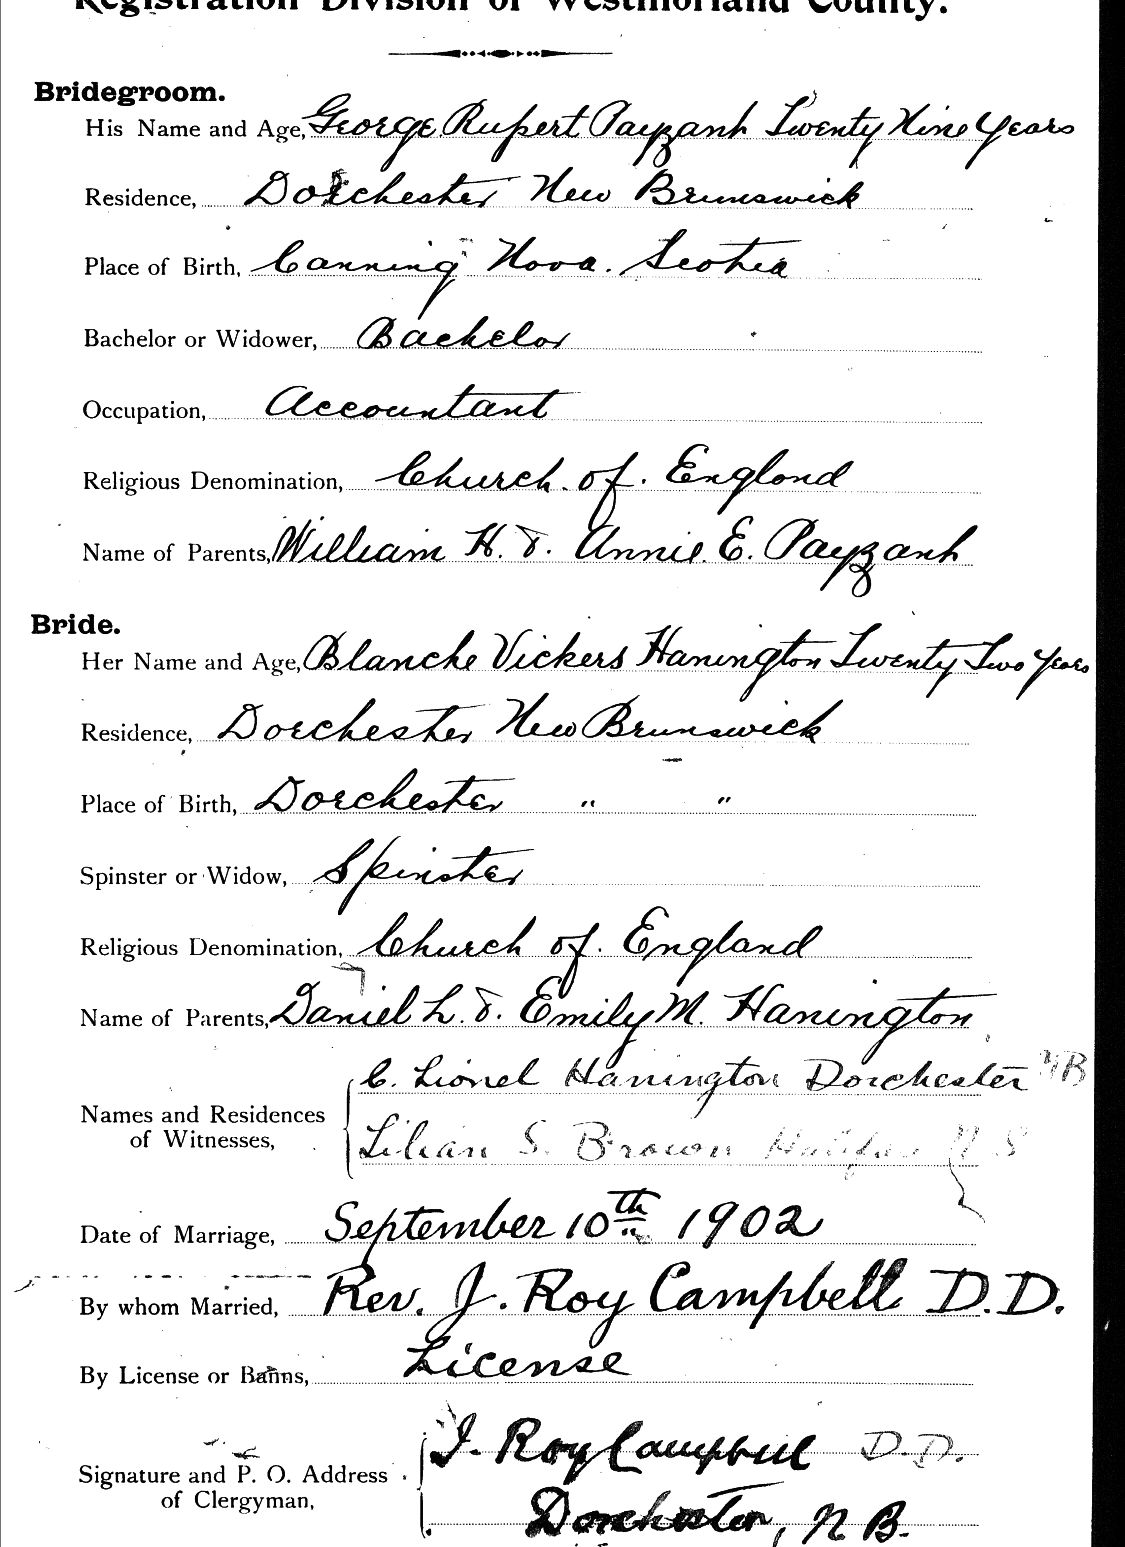 Registration Division of Westmorland County.
Bridegroom.
His Name and Age, George Rupert Payzant Twenty Nine Years
Residence, Dorchester New Brunswick
Place of Birth, Canning Nova Scotia
Bachelor or Widower, Bachelor
Occupation, Accountant
Religious Denomination, Church of England
Name of Parents, William H. & Annie E. Payzant
Bride.
Her Name and Age, Blanche Vickers Hanington Twenty Two Years
Residence, Dorchester New Brunswick
Place of Birth, Dorchester " "
Spinster or Widow, Spinster
Religious Denomination, Church of England
Name of Parents, Daniel L. & Emily M. Hanington
Names and Residences of Witnesses,
C. Lionel Hanington Dorchester NB
Lilian S. Brown Halifax N S
Date of Marriage, September 10th 1902
By whom Married, Rev. J. Roy Campbell D.D.
By License or Banns, License
Signature and P. O. Address of Clergyman,
J. Roy Campbell D.D.
Dorchester, N B.